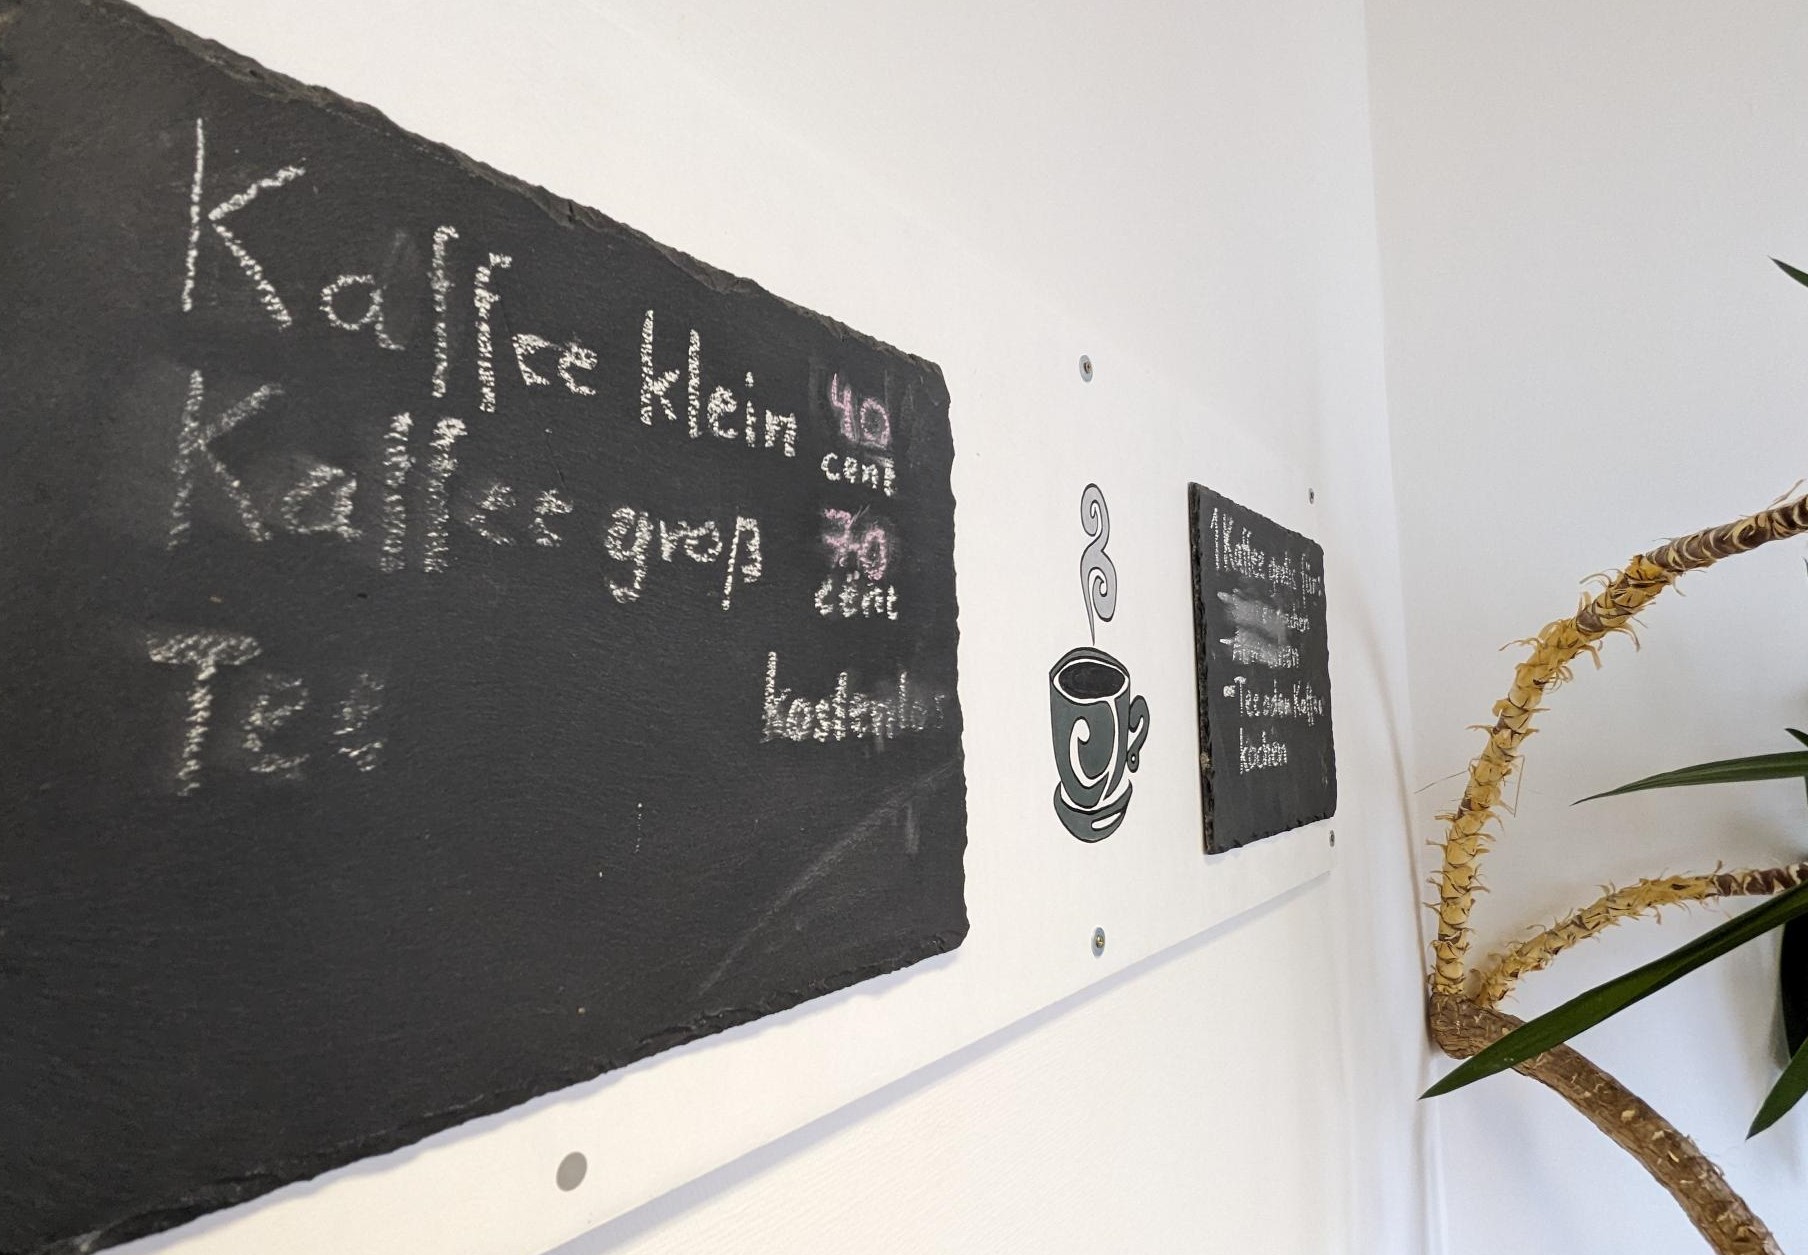 Kaffee klein 40 cent
Kaffee groß 70 cent
Tee kostenlos
1 Kaffee gratis für:
Tee oder Kaffee
kochen